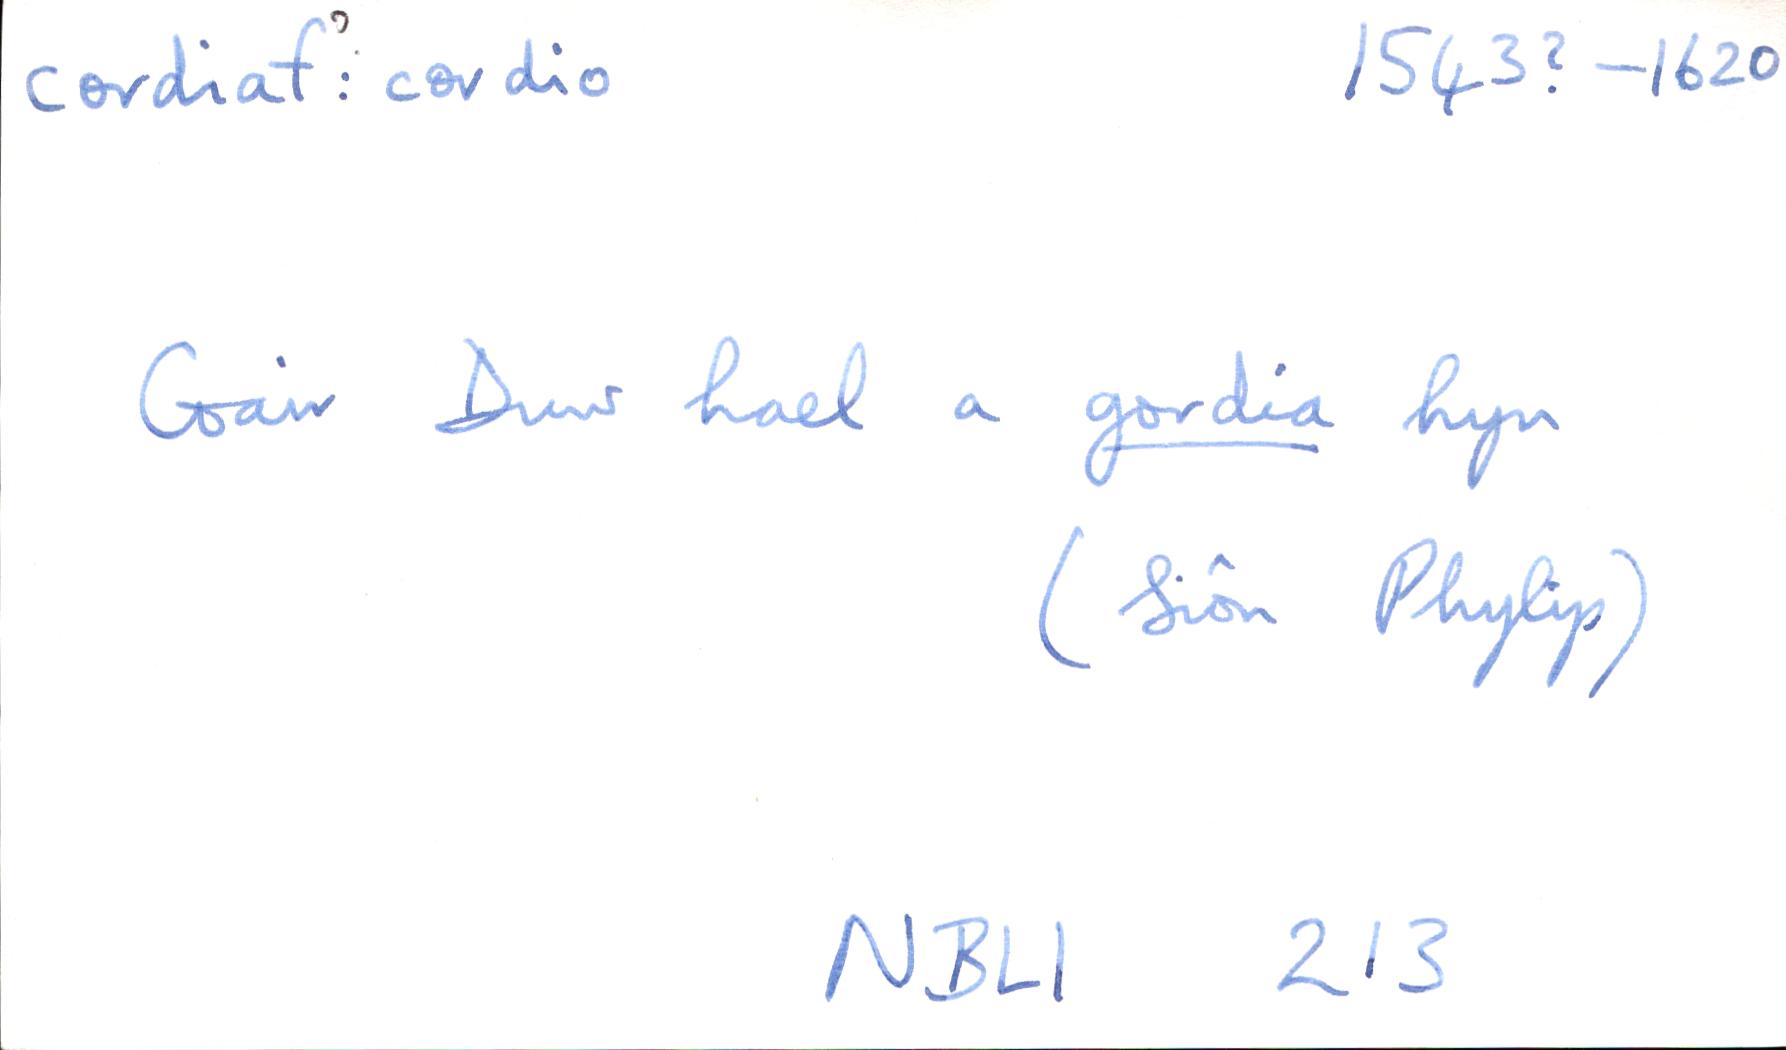 cordiaf?: cordio 1543?–1620
Gair Duw hael a gordia hyn
(Siôn Phylip)
NBLl 213